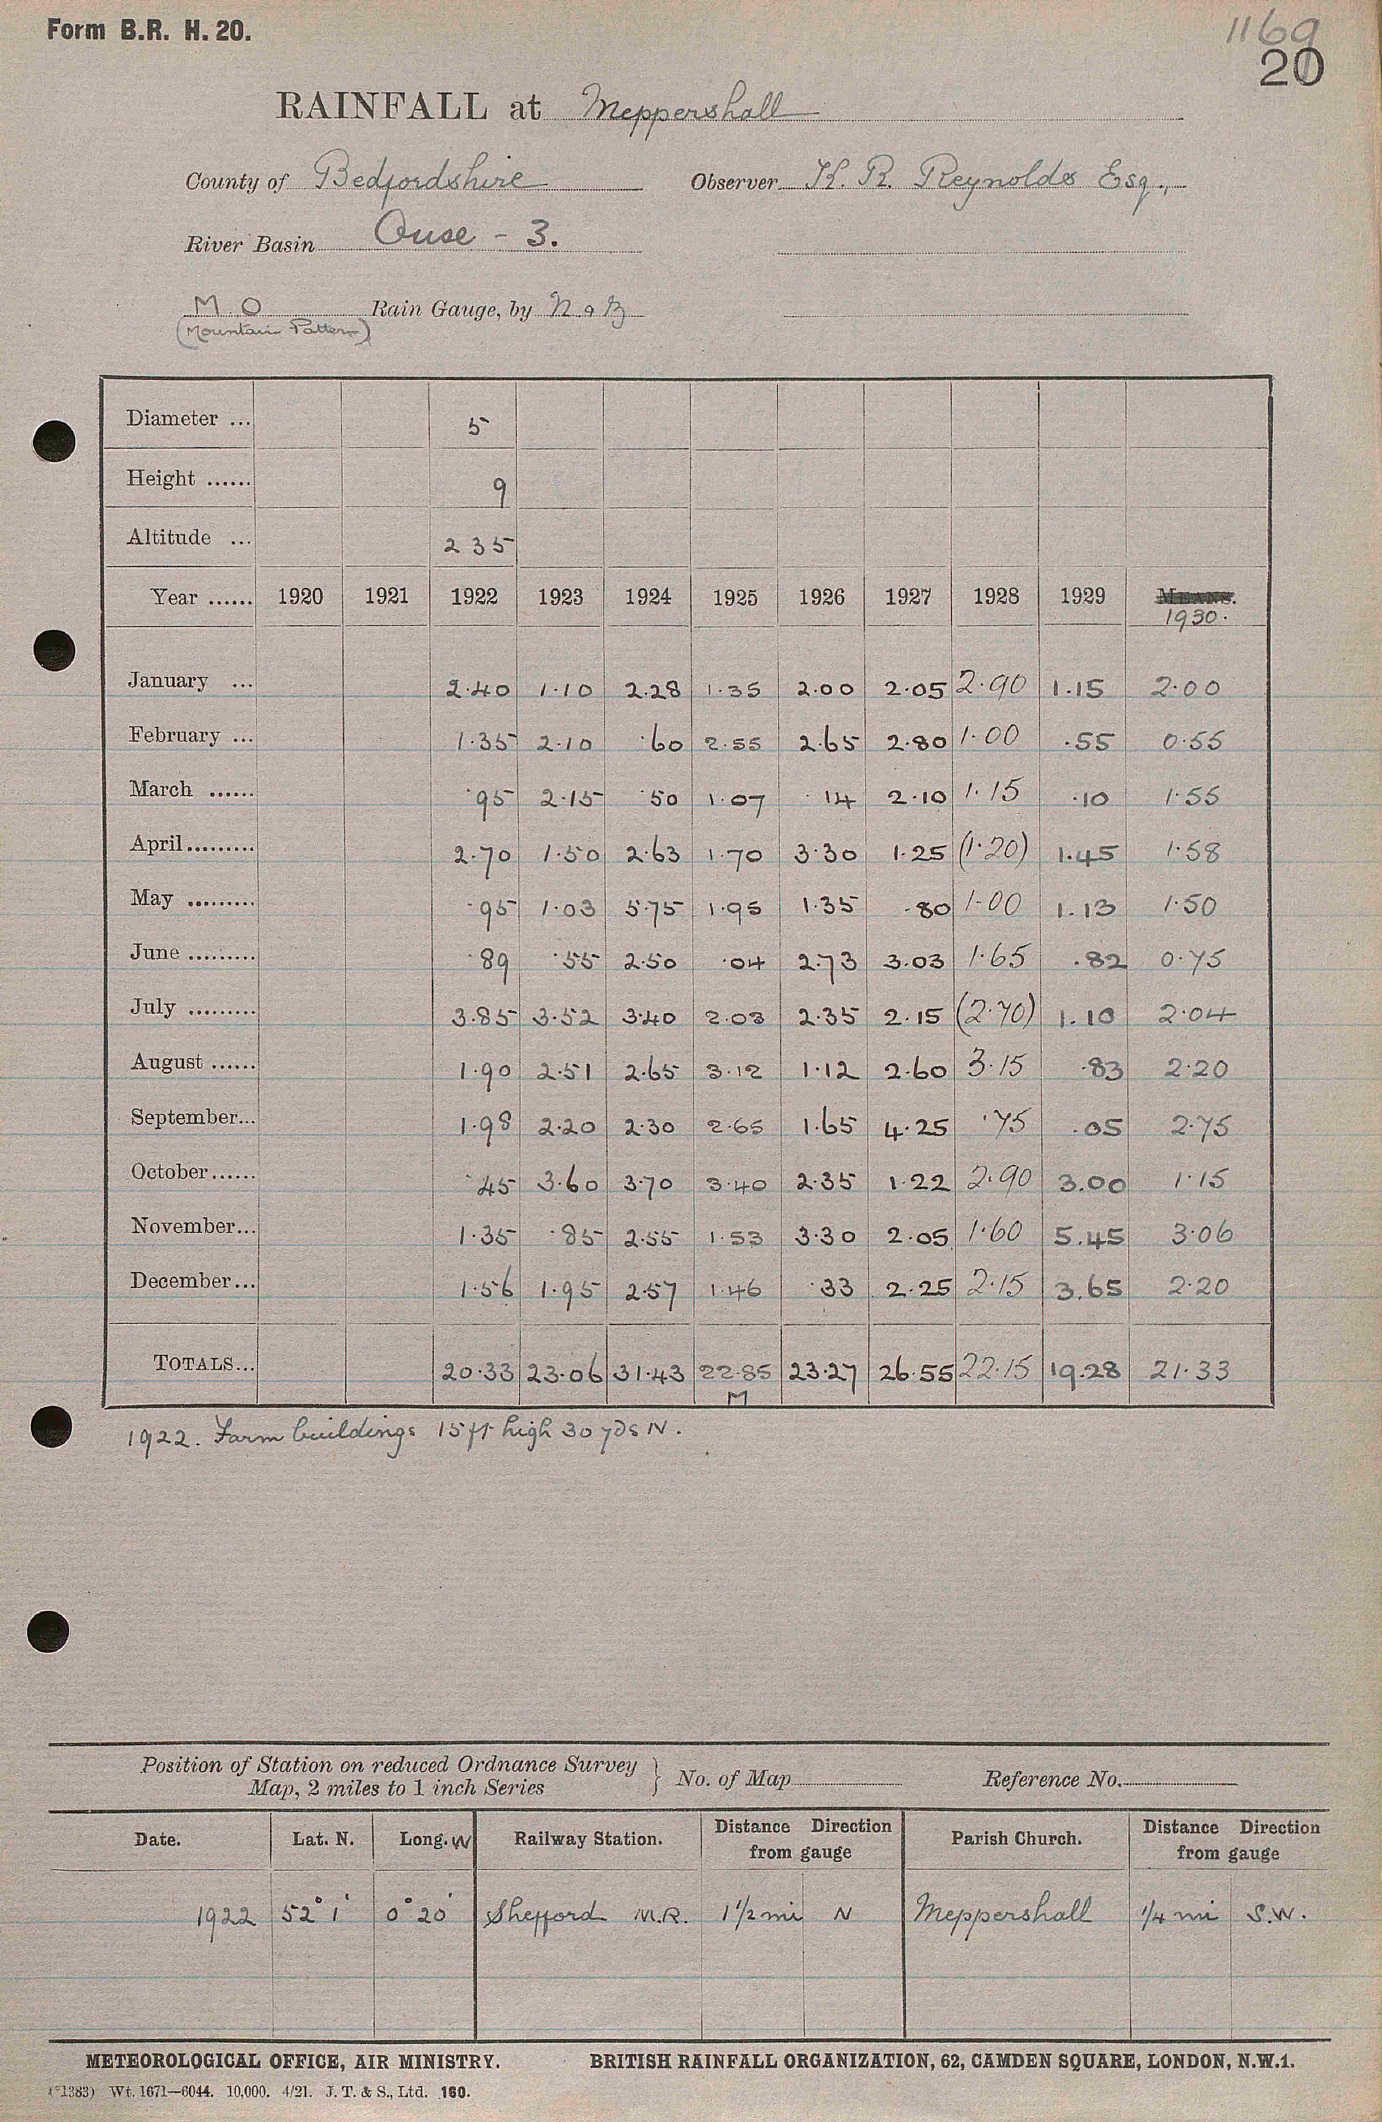 Form B.R. H. 20.
1169
20
RAINFALL at Meppershall
County of Bedfordshire Observer K. R. Reynolds Esq.,
River Basin Ouse - 3.
M. O Rain Gauge, by N & Z
(Mountain Pattern)
Diameter ... 5
Height ...... 9
Altitude ... 235
Year ...... 1920 1921 1922 1923 1924 1925 1926 1927 1928 1929 MEANS.
1930.
January ... 2.40 1.10 2.28 1.35 2.00 2.05 2.90 1.15 2.00
February ... 1.35 2.10 .60 2.55 2.65 2.80 1.00 .55 0.55
March ...... .95 2.15 .50 1.07 .14 2.10 1.15 .10 1.55
April ......... 2.70 1.50 2.63 1.70 3.30 1.25 (1.20) 1.45 1.58
May ......... .95 1.03 5.75 1.95 1.35 .80 1.00 1.13 1.50
June ......... .89 .55 2.50 .04 2.73 3.03 1.65 .82 0.75
July ......... 3.85 3.52 3.40 2.03 2.35 2.15 (2.70) 1.10 2.04
August ...... 1.90 2.51 2.65 3.12 1.12 2.60 3.15 .83 2.20
September... 1.98 2.20 2.30 2.65 1.65 4.25 .75 .05 2.75
October...... .45 3.60 3.70 3.40 2.35 1.22 2.90 3.00 1.15
November... 1.35 .85 2.55 1.53 3.30 2.05 1.60 5.45 3.06
December... 1.56 1.95 2.57 1.46 .33 2.25 2.15 3.65 2.20
TOTALS... 20.33 23.06 31.43 22.85 23.27 26.55 22.15 19.28 21.33
M
1922. Farm buildings 15 ft high 30 yds N.
Position of Station on reduced Ordnance Survey
Map, 2 miles to 1 inch Series } No. of Map Reference No.
Date. Lat. N. Long. W Railway Station. Distance Direction from gauge Parish Church. Distance Direction from gauge
1922 52° 1' 0° 20' Shefford M.R. 1 1/2 mi N Meppershall 1/4 mi S.W.
METEOROLOGICAL OFFICE, AIR MINISTRY. BRITISH RAINFALL ORGANIZATION, 62, CAMDEN SQUARE, LONDON, N.W.1.
(*1383) Wt. 1671—6044. 10,000. 4/21. J. T. & S., Ltd. 160.